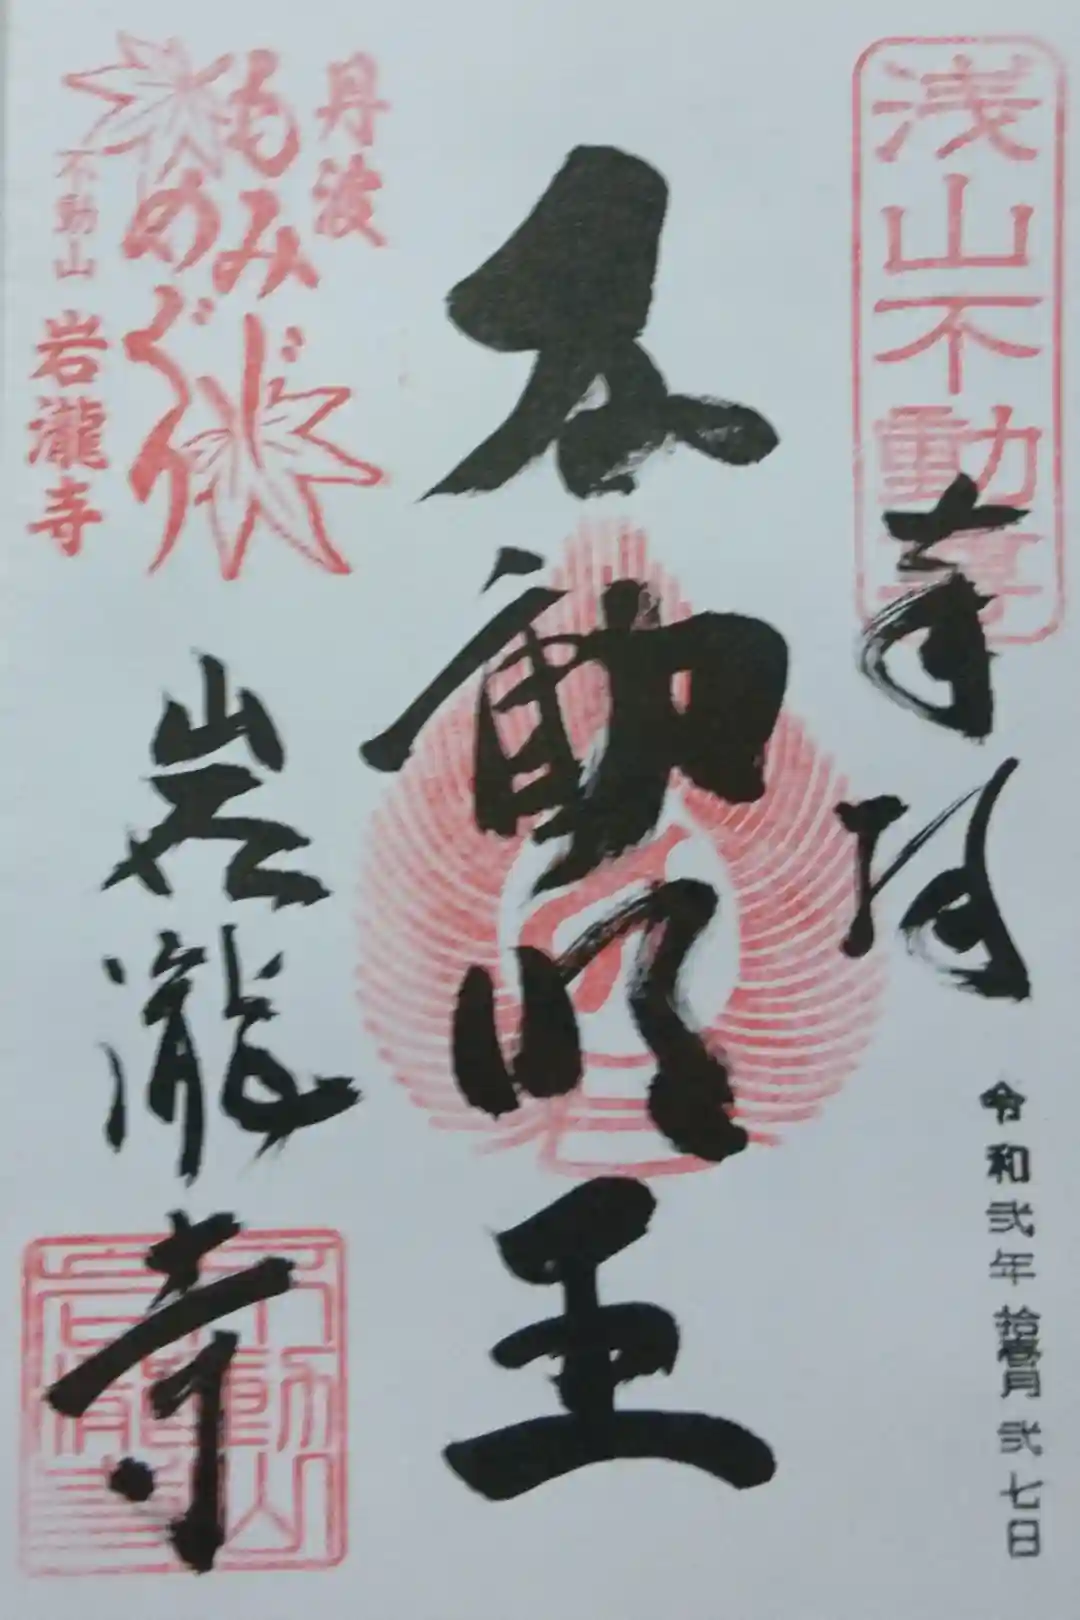 浅山不動尊
奉拝
令和弐年拾壱月弐七日
不動明王
丹波
もみじ
めぐり
不動山
岩瀧寺
岩瀧寺
不動山
岩瀧寺